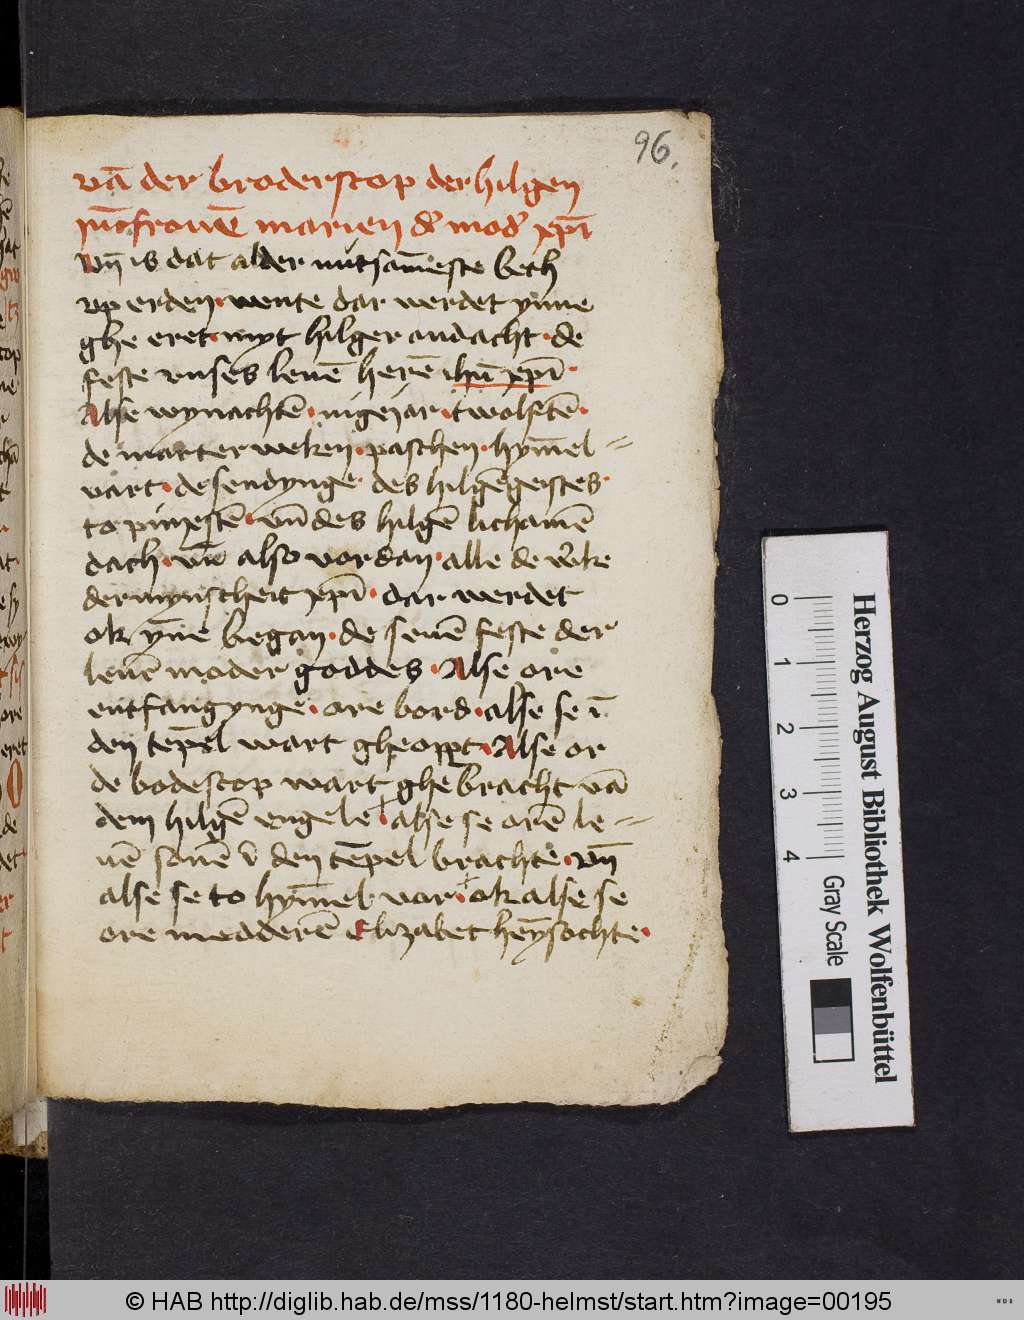 96.
vā der broderscop der hilgen
jūcfrouwē marien d' mod' xpī
Vn̄ is dat alder nutsāmeste beth
vp erden · wente dar werdet ynne
ghe eret · myt hilger andacht · de
feste vnses leuē herē ihū xpī ·
Alse wynachtē · nigejar · twolftē ·
de marter weken · paschen · hȳmel=
vart · de sendynge des hilgēgeistes ·
to pinxstē · vn̄ des hilgē lichamē
dach · vn̄ also vordan · alle de w'ke
der mynscheit xpī · dar werdet
ok yn̄e began · de seuē feste der
leuē moder goddes · Alse ore
entfangynge · ore bord · alse se ī
den tēpel wart gheoppt · Alse or
de bodescop wart ghebracht vā
dem hilgē engele · alse se orē le=
uē sonē ī den tēpel brachte · vn̄
alse se to hȳmel vor · ok alse se
ore medderē Elizabet heȳsochte ·
Herzog August Bibliothek Wolfenbüttel
Gray Scale
0 1 2 3 4
© HAB http://diglib.hab.de/mss/1180-helmst/start.htm?image=00195